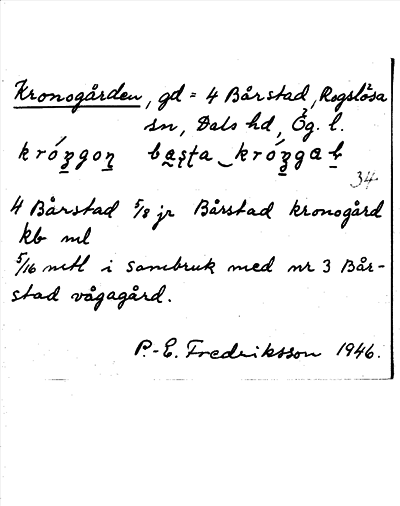 Kronogården, gd = 4 Bårstad, Rogslösa
sn, Dals hd, Ög. l.
34
4 Bårstad 5/8 jr Bårstad kronogård
kb ml
5/16 mtl i sambruk med nr 3 Bår-
stad vågagård.
P.-E. Fredriksson 1946.